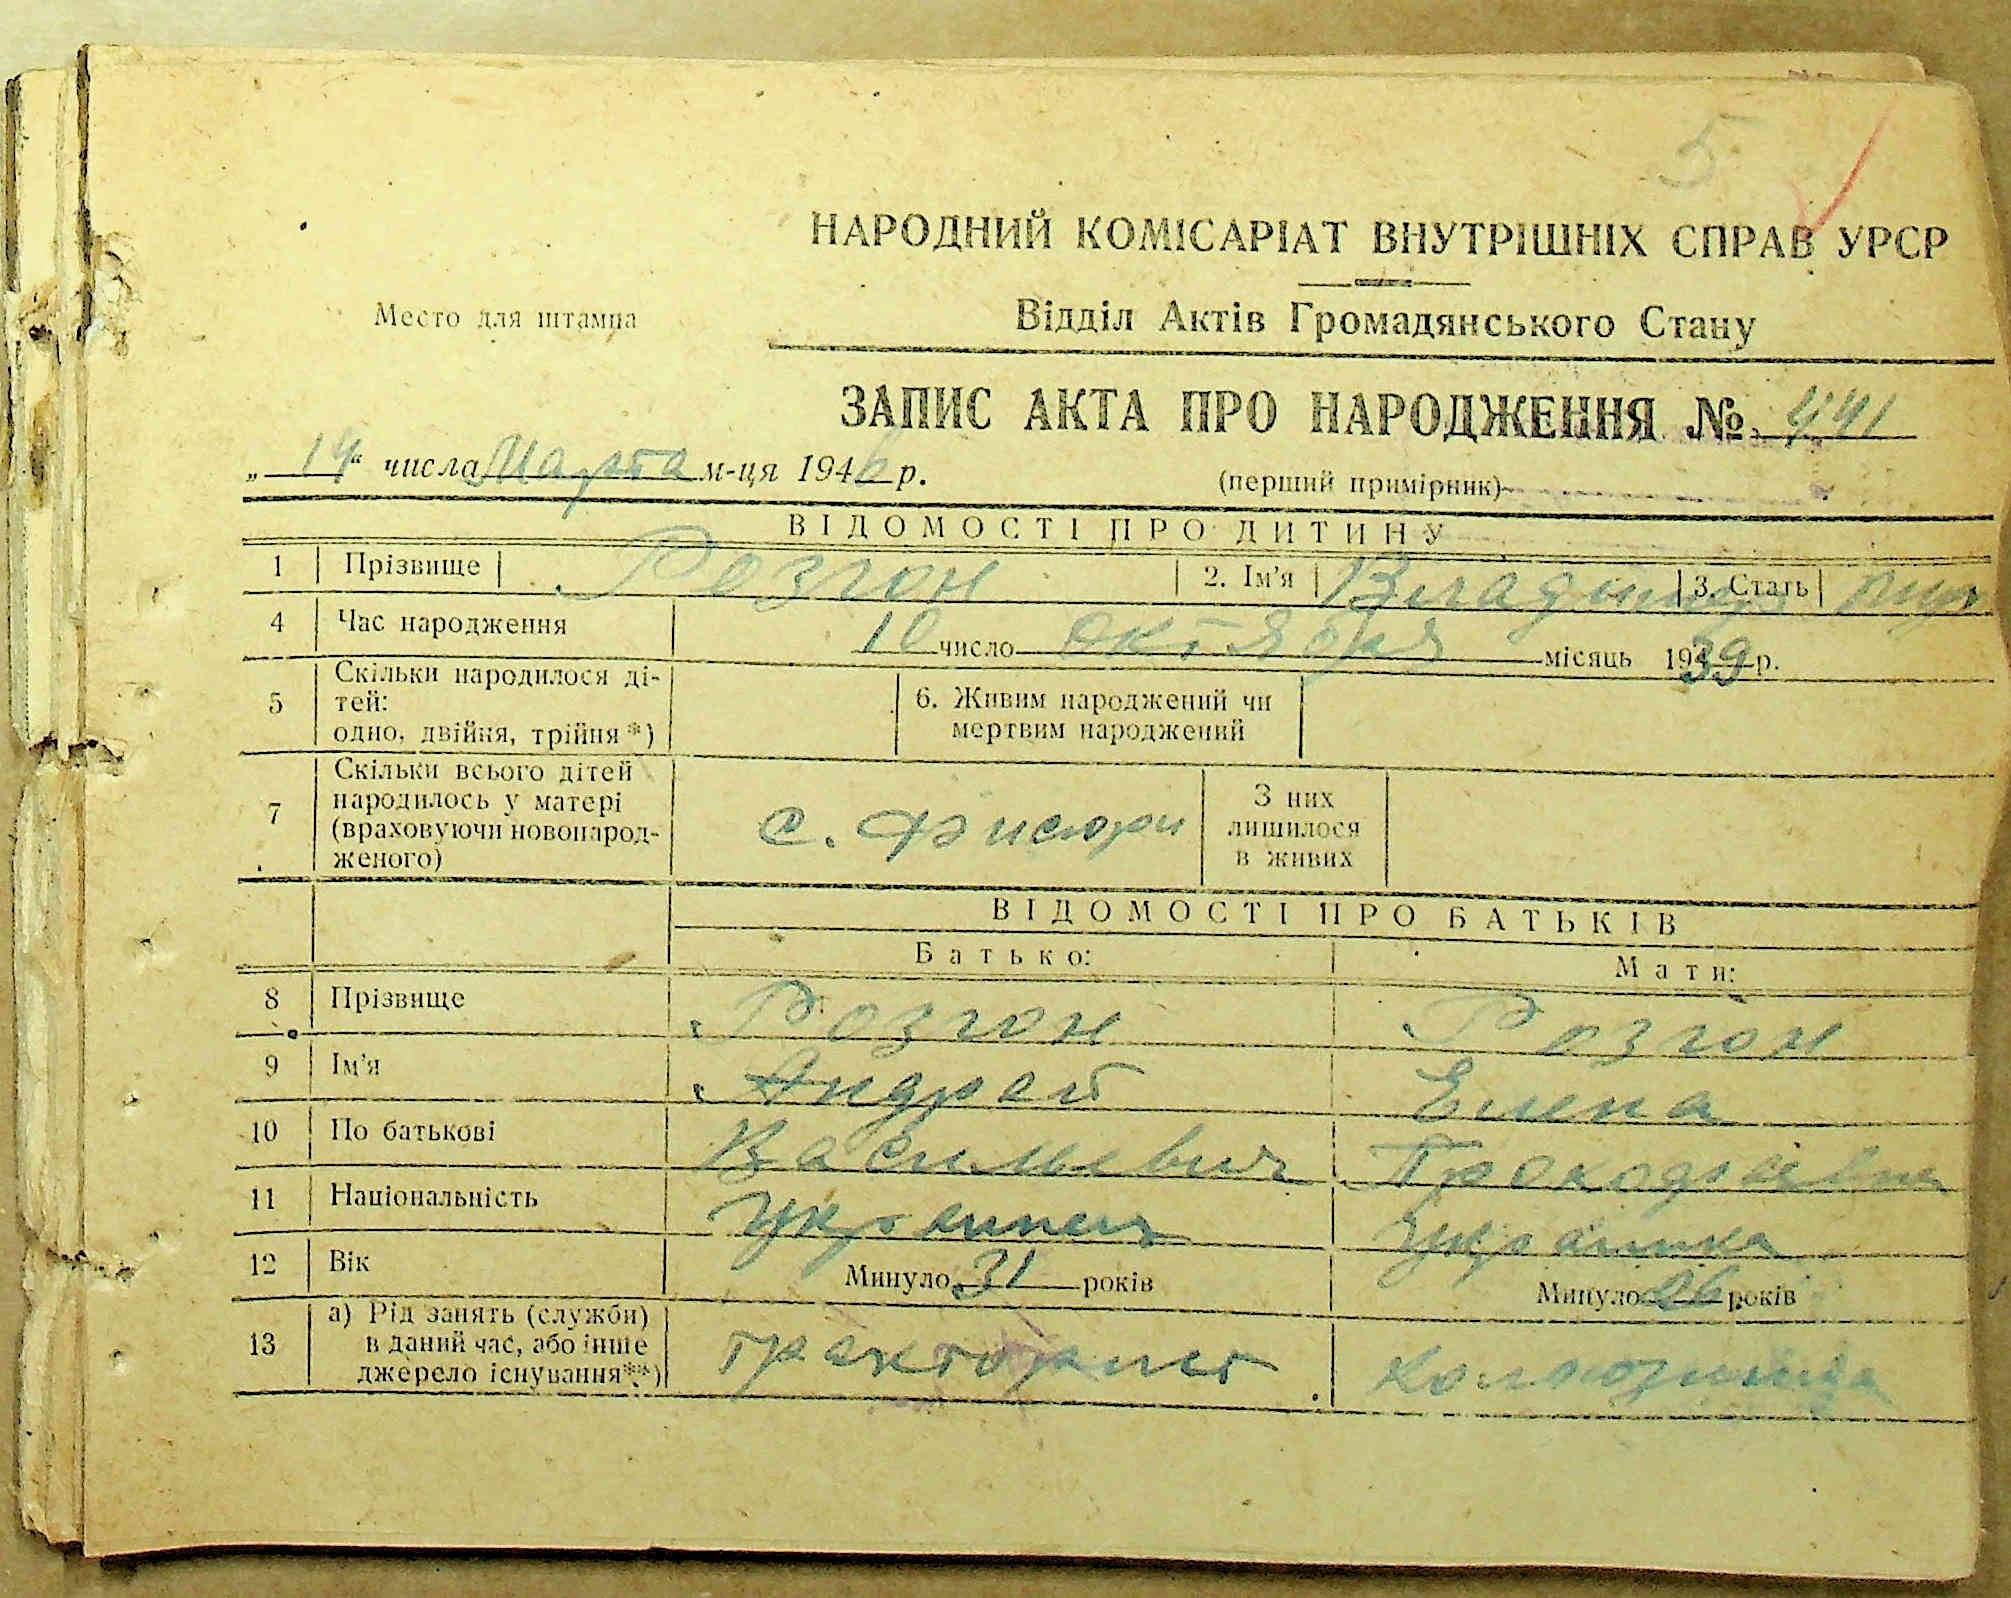 5
НАРОДНИЙ КОМІСАРІАТ ВНУТРІШНІХ СПРАВ УРСР
Место для штампа
Відділ Актів Громадянського Стану
ЗАПИС АКТА ПРО НАРОДЖЕННЯ № 441
„14“ числа Марта м-ця 1946 р.
(перший примірник)
ВІДОМОСТІ ПРО ДИТИНУ
1 Прізвище Розгон 2. Ім'я Владимир 3. Стать муж
4 Час народження 10 число октября місяць 1939 р.
5 Скільки народилося ді-
тей:
одно, двійня, трійня*)
6. Живим народжений чи
мертвим народжений
7 Скільки всього дітей
народилось у матері
(враховуючи новонарод-
женого)
с.
З них
лишилося
в живих
ВІДОМОСТІ ПРО БАТЬКІВ
Батько: Мати:
8 Прізвище Розгон Розгон
9 Ім'я Андрей Елена
10 По батькові Васильевич
11 Національність Украинец Украинка
12 Вік Минуло 31 років Минуло 26 років
13 а) Рід занять (служби)
в даний час, або інше
джерело існування**)
тракторист колхозница